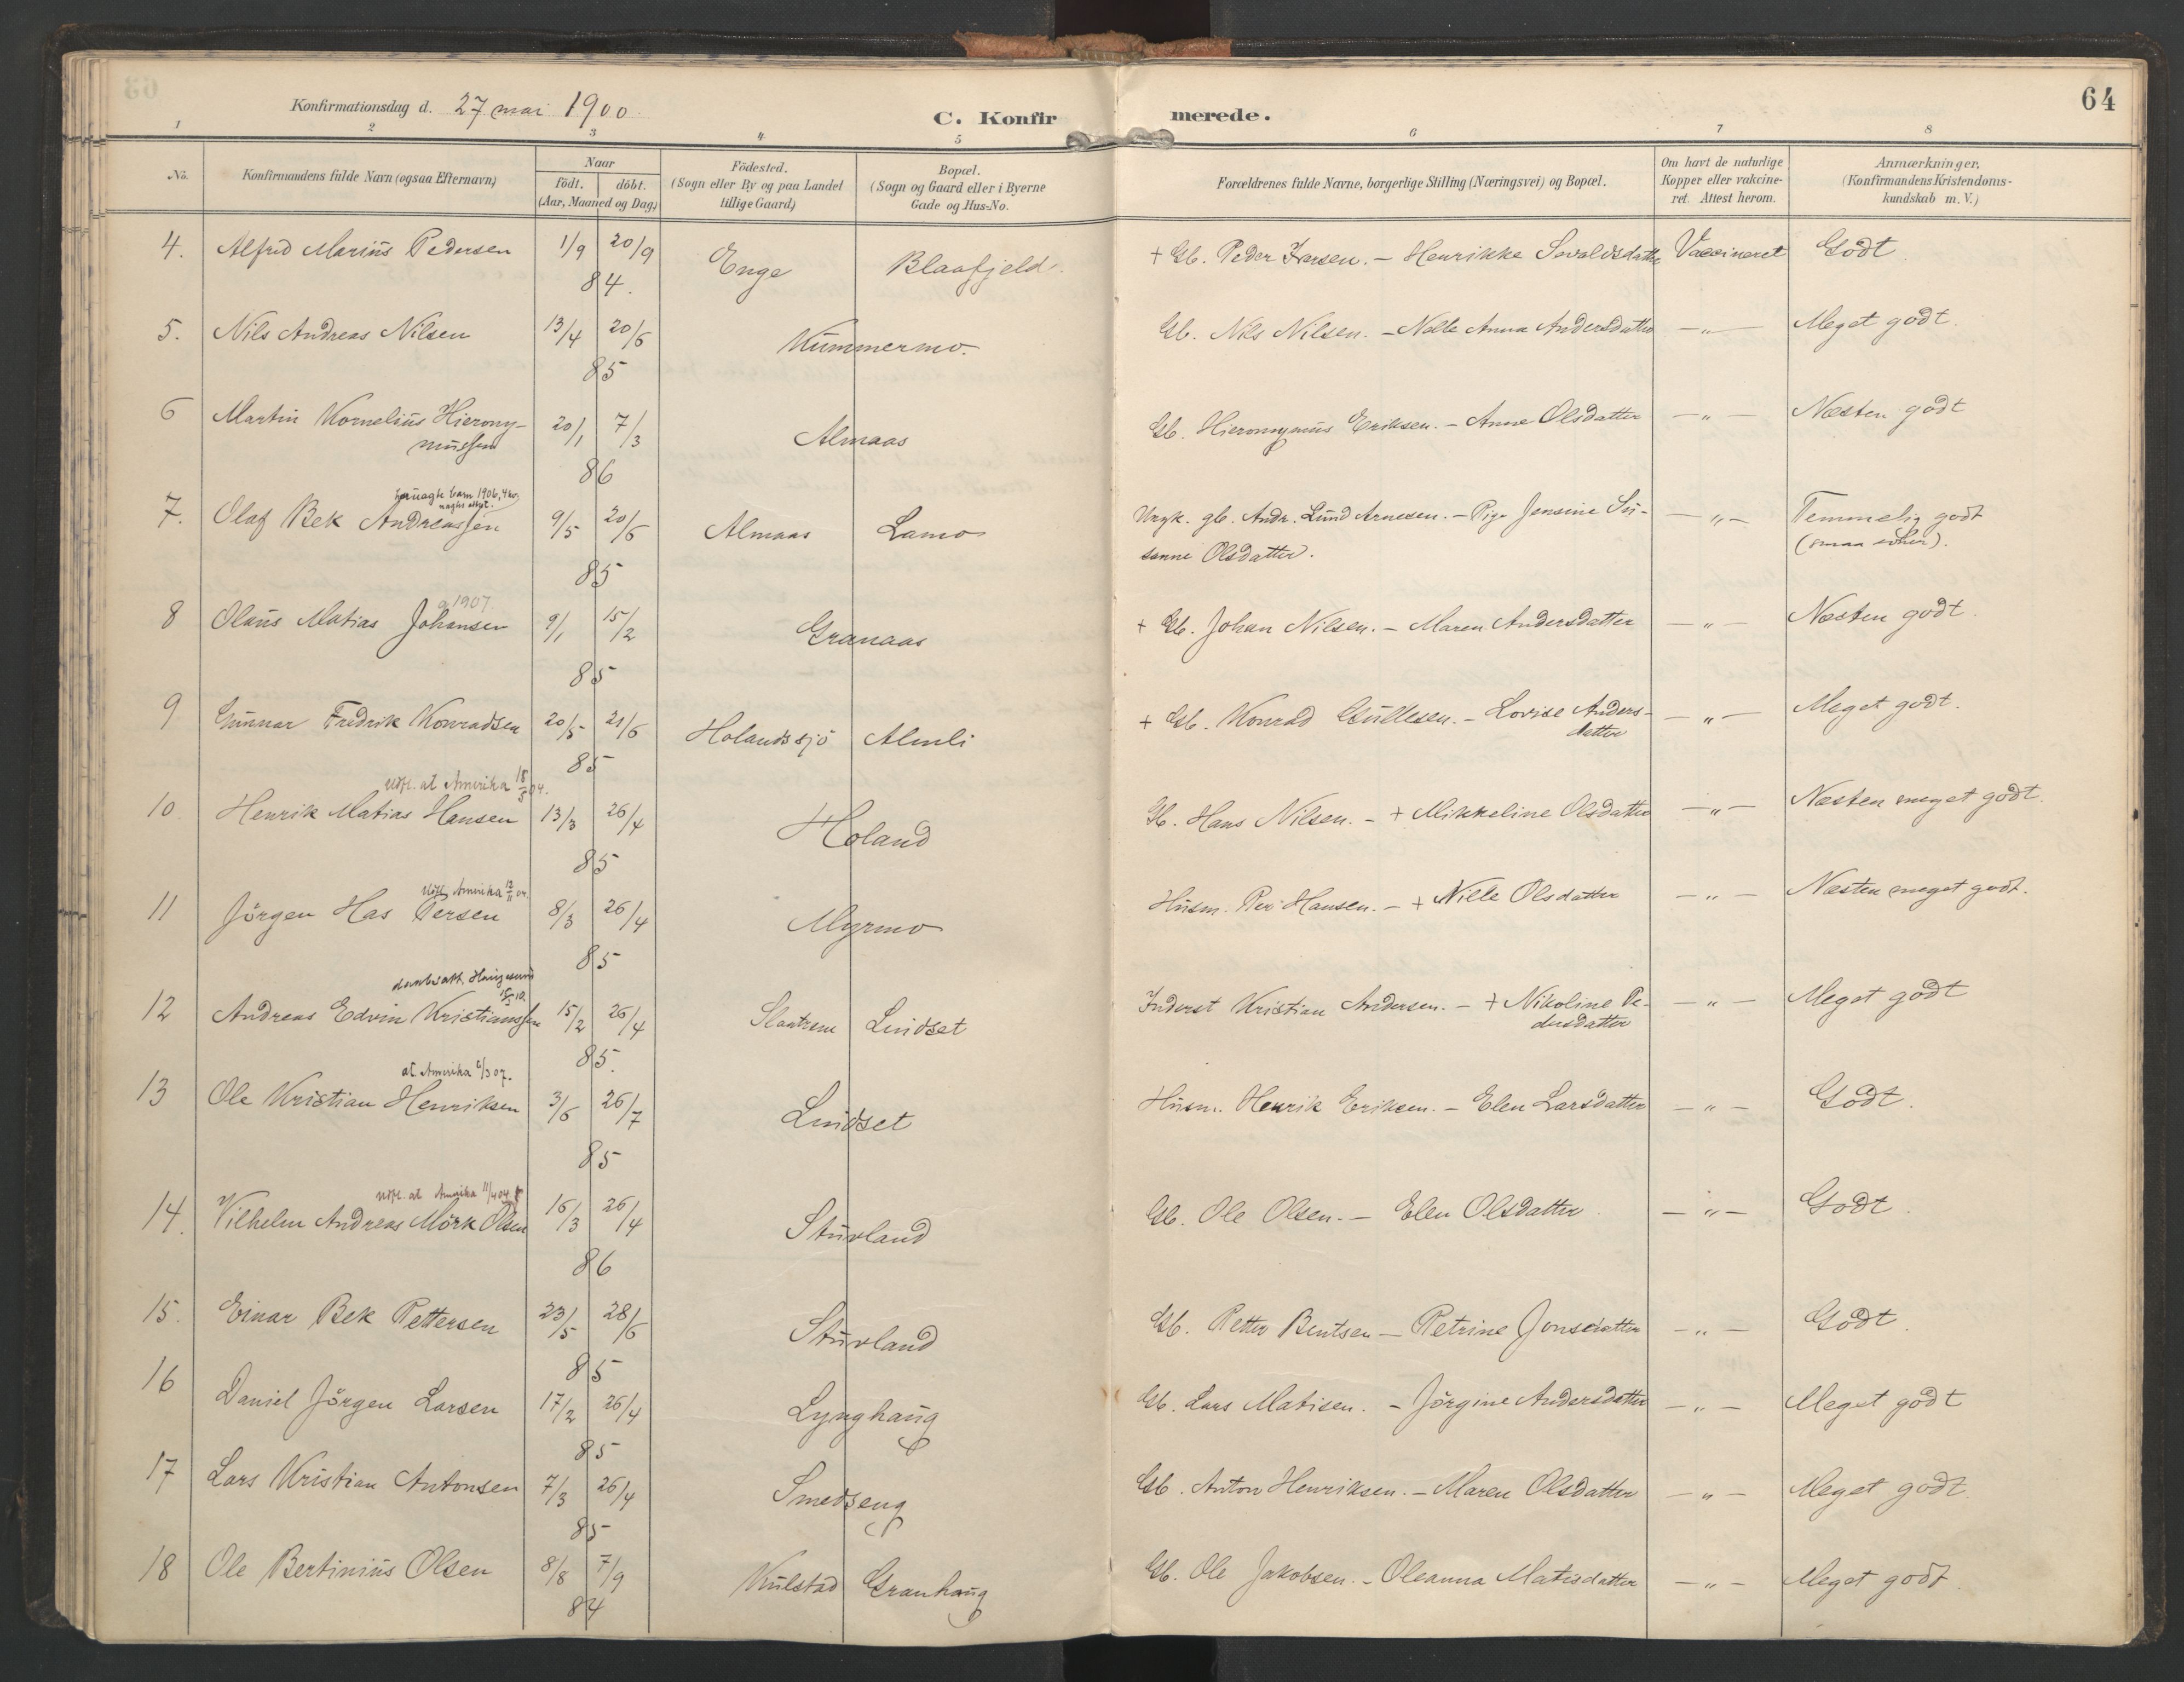 64
Konfirmationsdag d. 27 mai 1900
C. Konfirmerede.
1 2 3 4 5 6 7 8
No. Konfirmandens fulde Navn (ogsaa Efternavn) Naar födt. döbt. (Aar, Maaned og Dag.) Födested. (Sogn eller By og paa Landet tillige Gaard.) Bopæl. (Sogn og Gaard eller i Byerne Gade og Hus-No. Forældrenes fulde Navne, borgerlige Stilling (Næringsvei) og Bopæl. Om havt de naturlige Kopper eller vakcineret. Attest herom. Anmærkninger, (Konfirmandens Kristendomskundskab m. V.)
4. Alfred Marius Pedersen 1/9 20/9 84. Enge Blaafjeld. + Gb. Peder Ivarsen. – Henrikke Sevaldsdatter Vaccineret Godt
5. Nils Andreas Nilsen 13/4 20/6 85 Kummermo. Gb. Nils Nilsen. – Anna Andersdatter – „ – Meget godt.
6 Martin Kornelius Hierony-
mussen 20/1 7/3 86 Almaas Gb. Hieronymus Eriksen. – Anne Olsdatter – „ – Næsten godt
barn 1906,
7. Olaf Bek Andreassen 9/5 20/6 85 Almaas Lamo Ungk. gb. Andr. Lund Arnesen. – Pige Jensine Su-
sanne Olsdatter. – „ – Temmelig godt
(smaa evner).
1907
8 Olaus Matias Johansen 9/1 15/2 85 Granaas + Gb. Johan Nilsen. – Maren Andersdatter – „ – Næsten godt.
9 Gunnar Fredrik Konradsen 20/5 21/6 85 Holandssjö Almli + Gb. Konrad Gullesen. – Lovise Anders-
datter – „ – Meget godt.
Udfl. at Amerika 18/5 04.
10. Henrik Matias Hansen 13/3 26/4 85 Holand Gb. Hans Nilsen. – + Mikkeline Olsdatter – „ – Næsten meget godt.
Udfl. Amerika
11 Jörgen Has Persen 8/3 26/4 85 Myrmo Husm. Per Hansen. – + Nille Olsdatter – „ – Næsten meget godt.
Haugesund
12 Andreas Edvin Kristianssen 15/2 26/4 85. Slaatrem Lindset Inderst Kristian Andersen. – + Nikoline Pe-
dersdatter – „ – Meget godt
at Amerika 6/3 07.
13 Ole Kristian Henriksen 3/6 26/7 85 Lindset Husm. Henrik Eriksen. – Elen Larsdatter – „ – Godt.
Udfl. at Amerika 11/4 04
14. Vilhelm Andreas Mörk Olsen 16/3 26/4 86 Stuvland Gb. Ole Olsen. – Elen Olsdatter – „ – Godt.
15. Einar Bek Pettersen 23/5 28/6 85 Stuvland Gb. Petter Bentsen – Petrine Jonsdatter – „ – Godt.
16 Daniel Jörgen Larsen 17/2 26/4 85 Lynghaug Gb. Lars Matisen. – Jörgine Andersdatter – „ – Meget godt
17 Lars Kristian Antonsen 7/3 26/4 85 Smedseng Gb. Anton Henriksen. – Maren Olsdatter – „ – Meget godt.
18 Ole Bertinius Olsen 8/8 7/9 84 Kulstad Granhaug Gb. Ole Jakobsen. – Oleanna Matisdatter – „ – Meget godt.